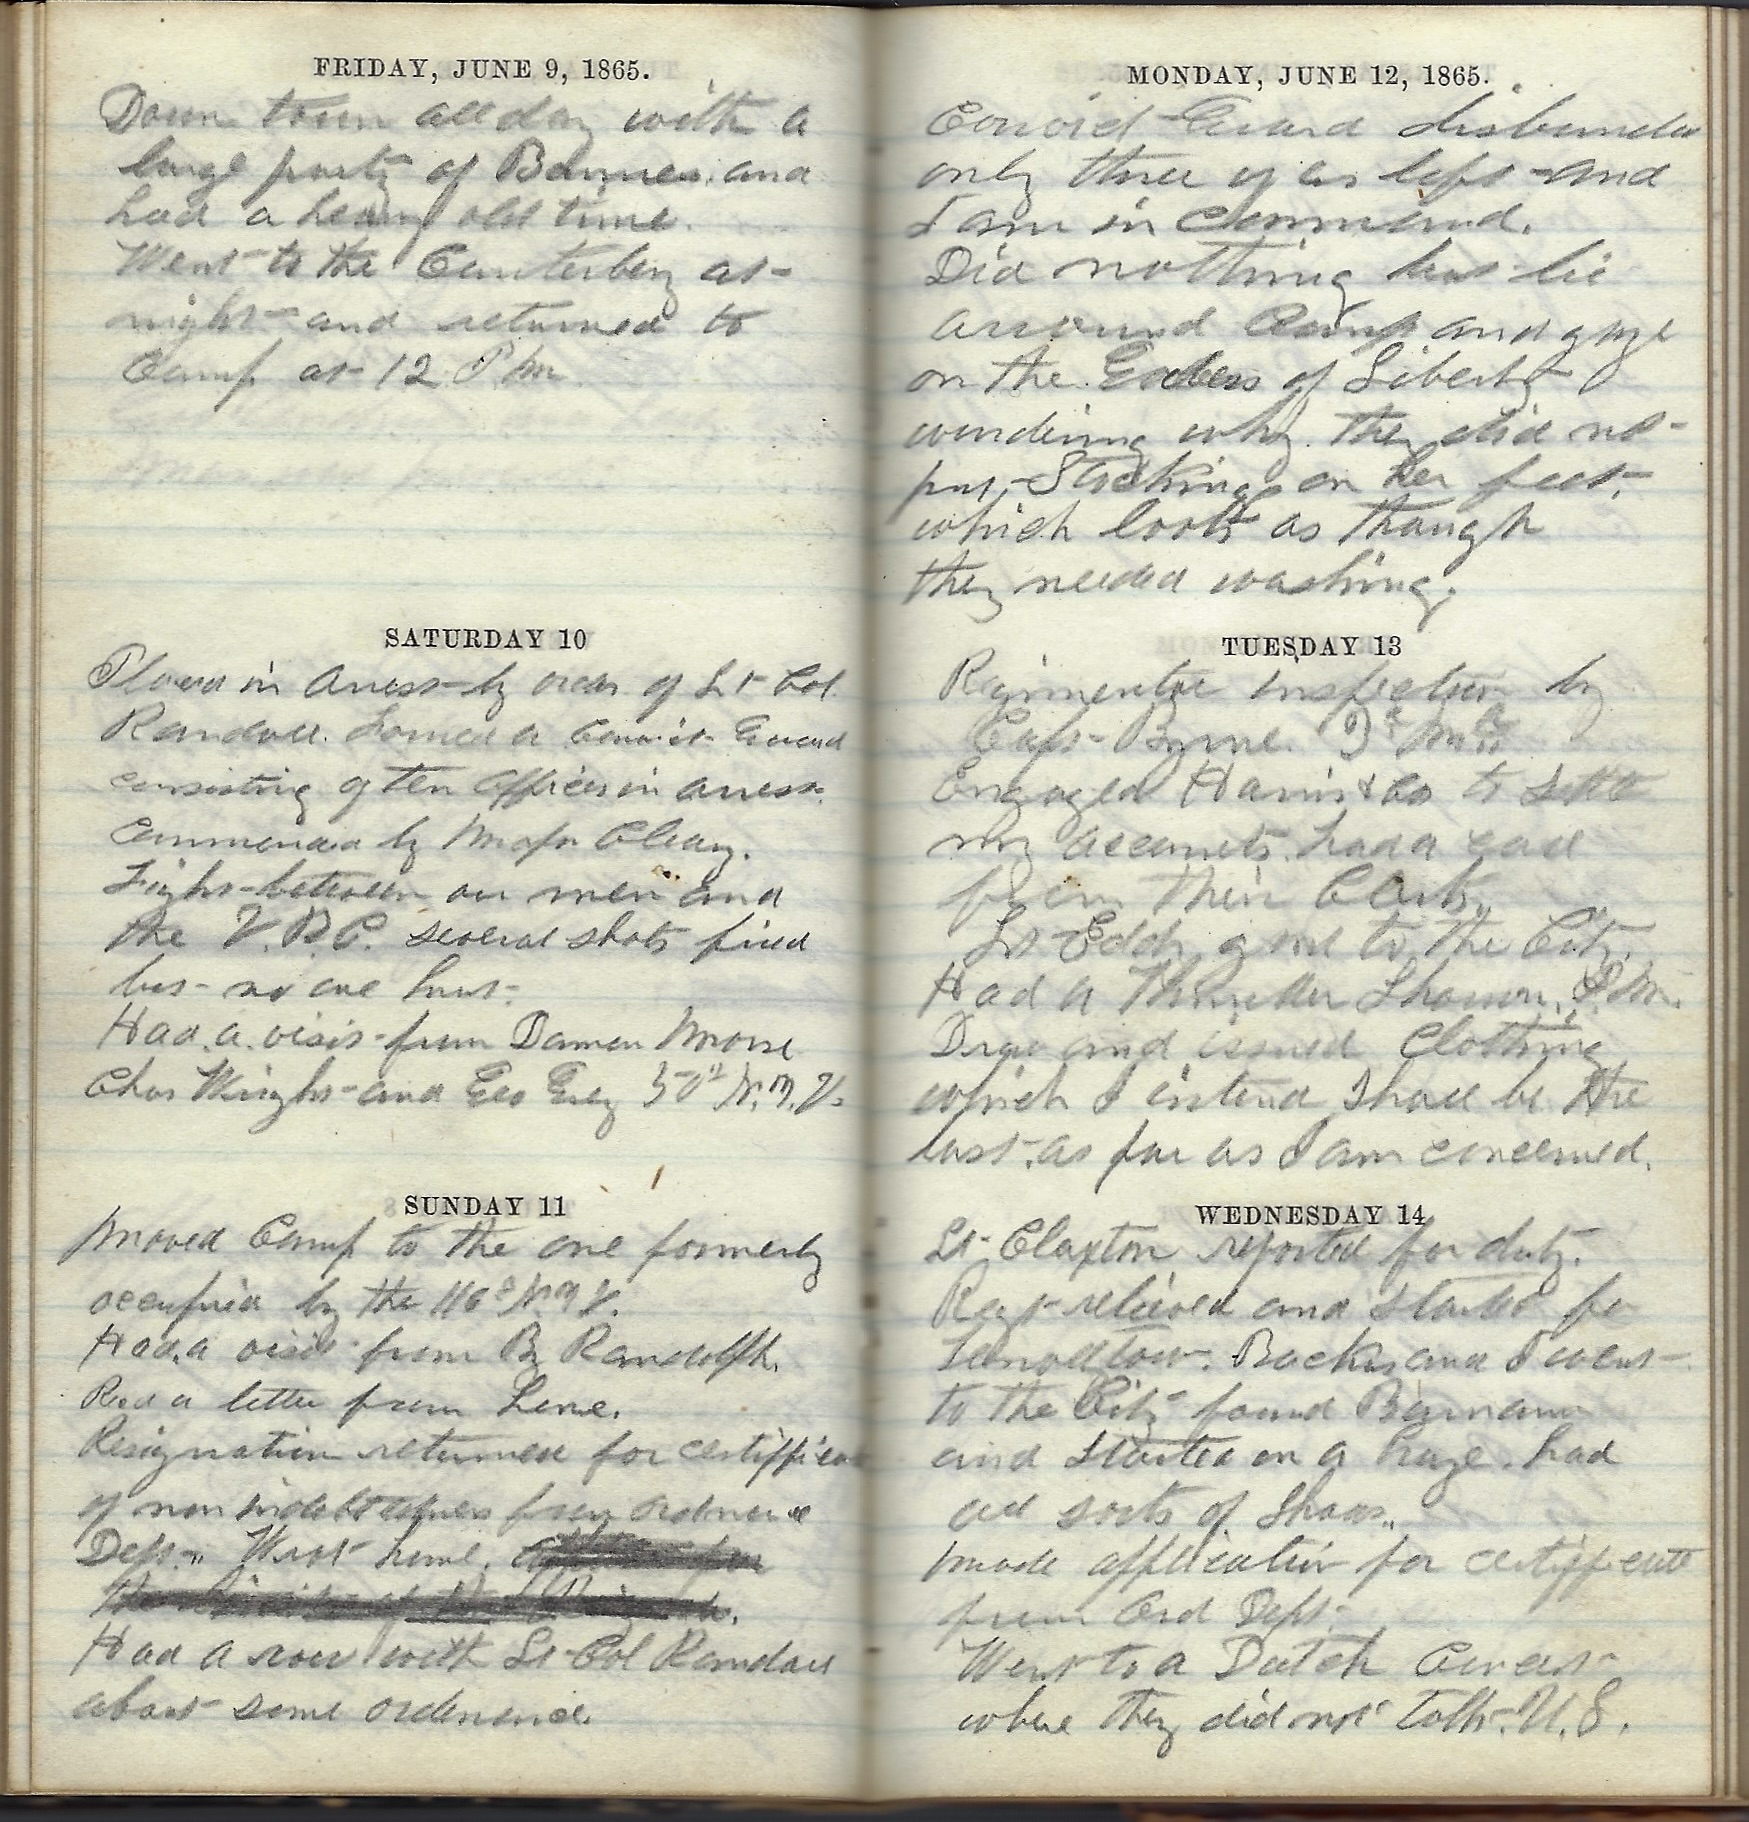 FRIDAY, JUNE 9, 1865.
Down town all day with a
large party of and
had a heavy old time.
Went to the Canterbury at
night and returned to
Camp at 12 P M
SATURDAY 10
Placed in arrest by order of Lt Col.
Randall. Formed a Convict Guard
consisting of ten officers in arrest.
Commanded by Major Cleary.
Fight between our men and
the V. R. C. several shots fired
but no one hurt.
Had a visit from Damon Morse
Chas Wright and Geo Grey 50th N.Y.V.
SUNDAY 11
Moved Camp to the one formerly
occupied by the 116th N.Y.V.
Had a visit from B Randolph.
Recd a letter from Lene.
Resignation returned for certifficate
of non indebtedness from Ordnance
Dept. Wrote home.
Had a row with Lt Col Randall
about some ordenance.
MONDAY, JUNE 12, 1865.
Convict Guard disbanded
only three of us left and
I am in Command.
Did nothing but lie
arround Camp and gaze
on the Godess of Liberty
wondering why they did not
put Stockings on her feet,
which looks as though
they needed washing.
TUESDAY 13
Regimental inspection by
Capt Byrne.
Engaged Harris & Co to settle
my accounts. had a call
from their Clerk.
Lt Eddy gone to the City.
Had a Thunder Shower, P.M.
Drew and issued Clothing
which I intend Shall be the
last as far as I am concerned.
WEDNESDAY 14
Lt Claxton reported for duty.
Regt relieved and started for
Tenallytown. Backus and I went
to the City found
and started on a . had
all sorts of
made application for certifficate
from Ord Dept.
Went to a Dutch Concert
where they did not talk U.S.